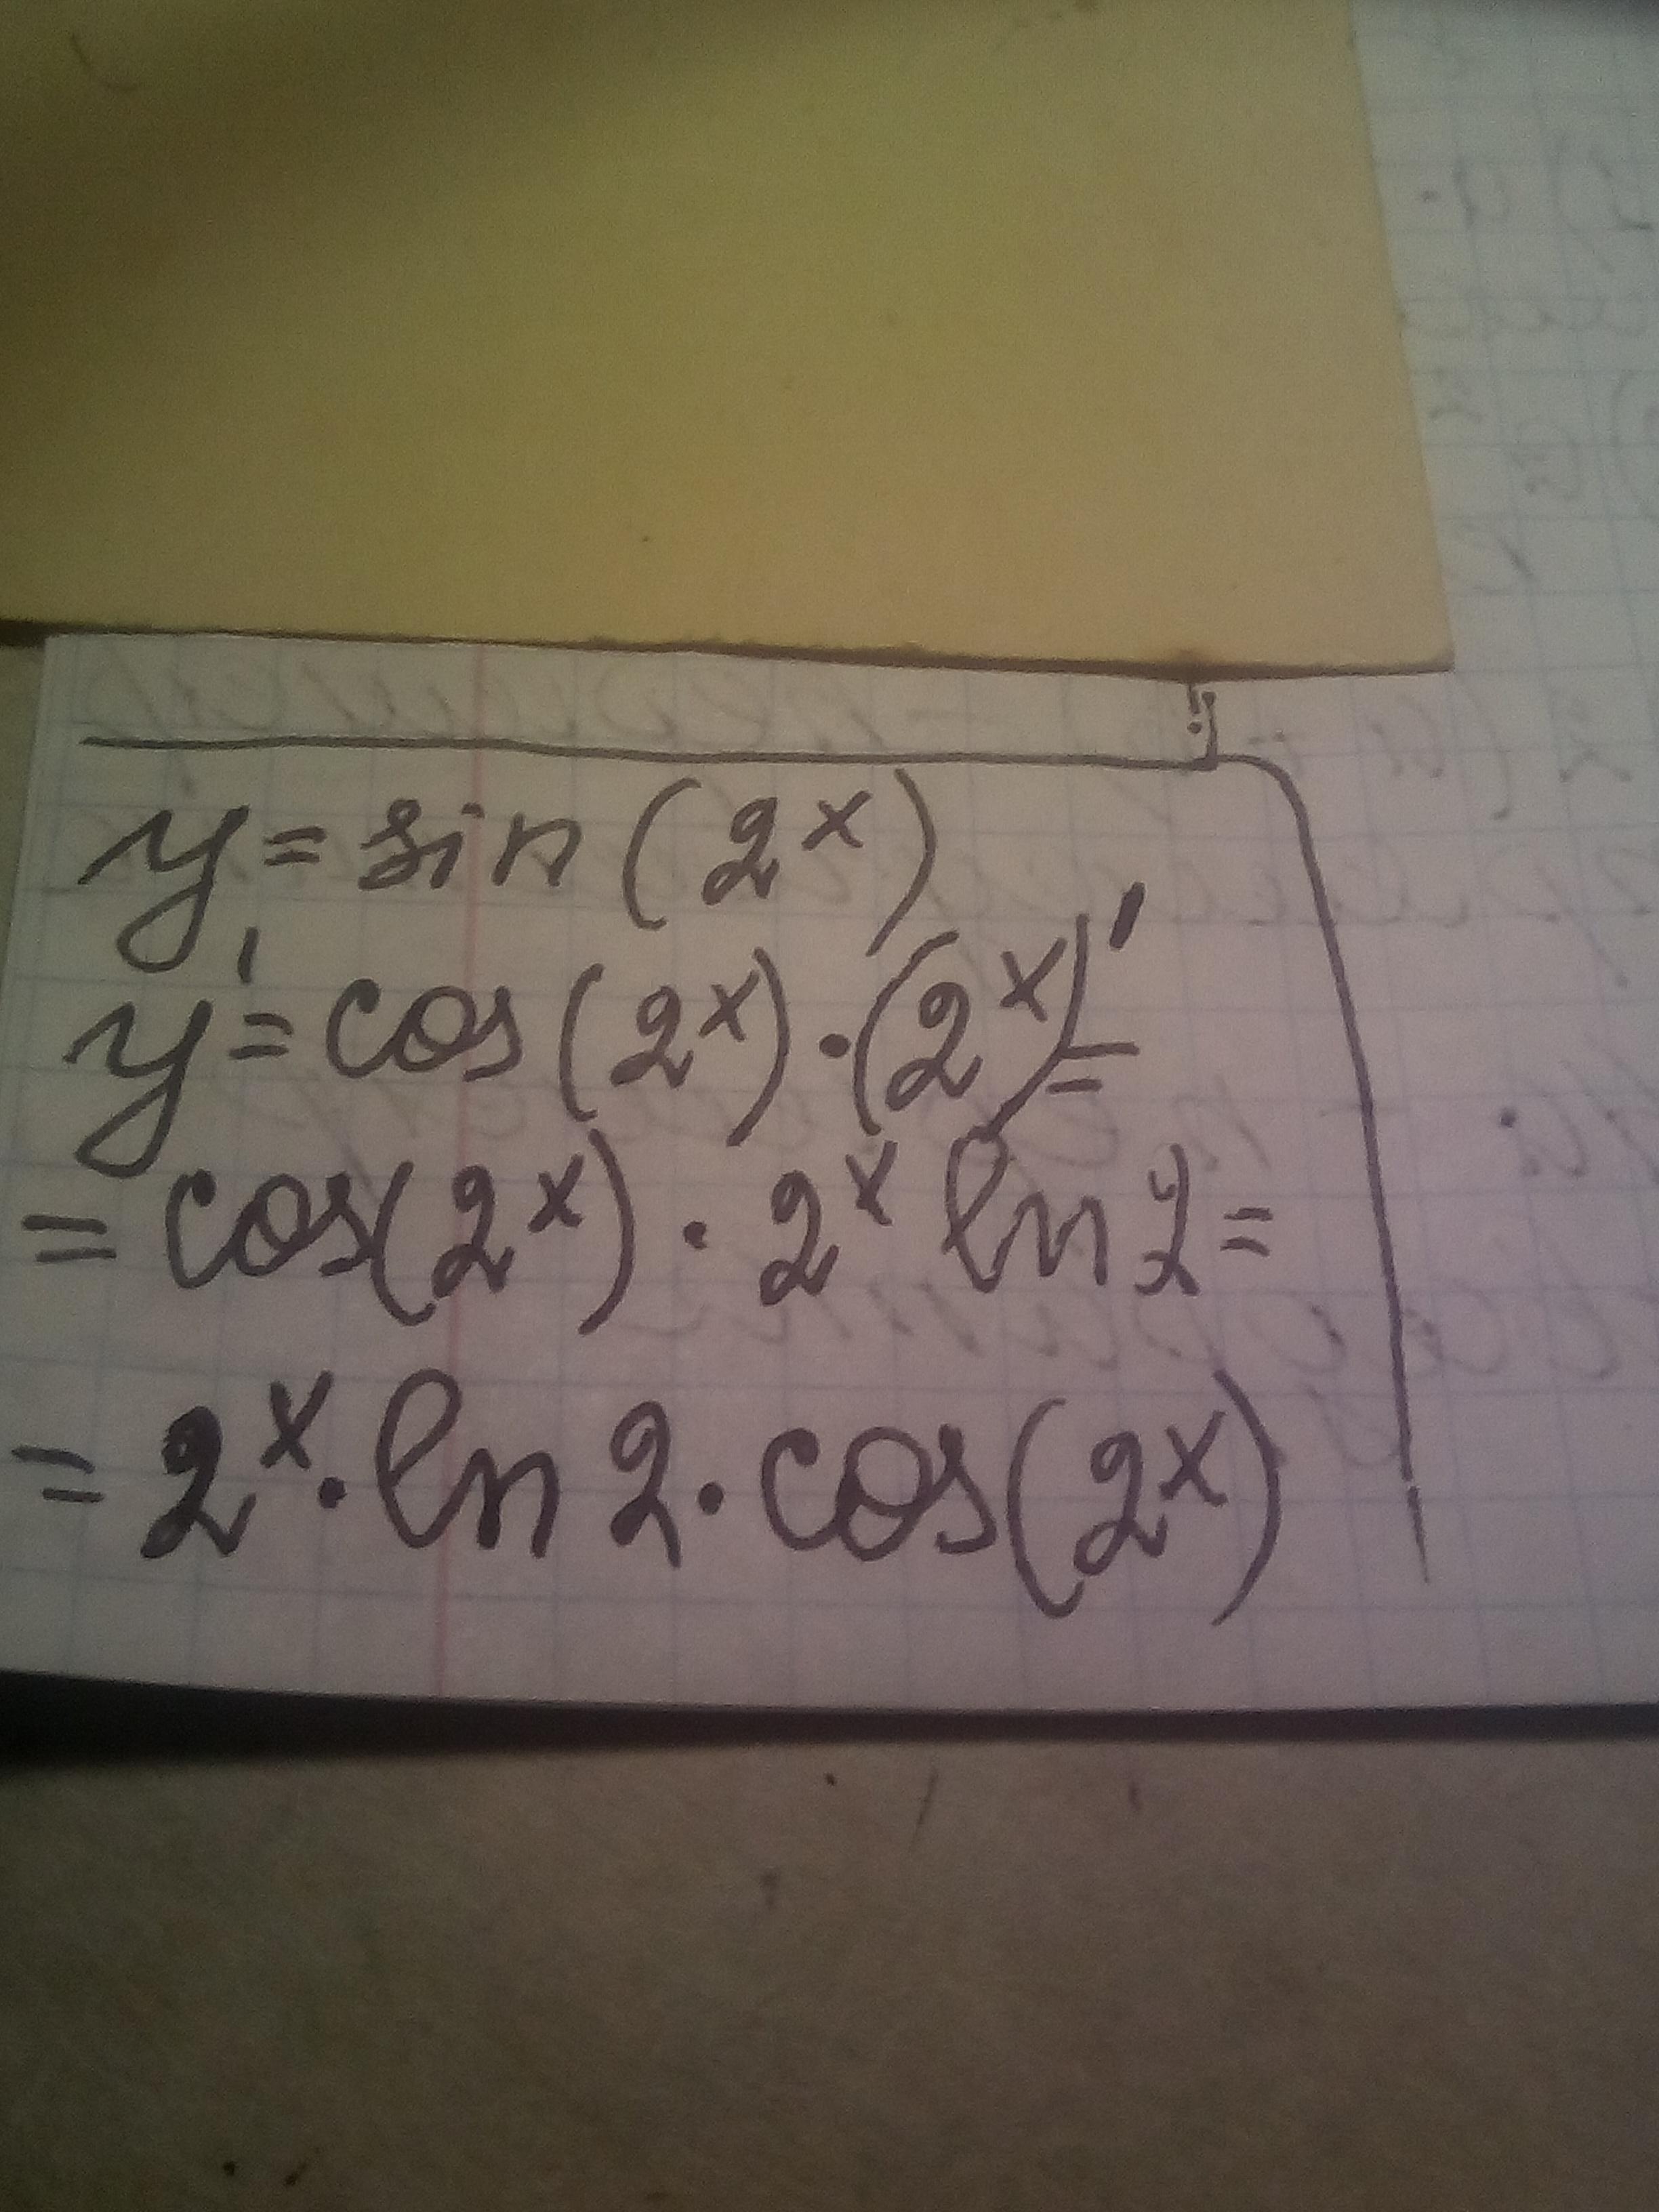 y = sin (2^x)
y' = cos (2^x) · (2^x)' =
= cos(2^x) · 2^x ln 2 =
= 2^x · ln 2 · cos(2^x)